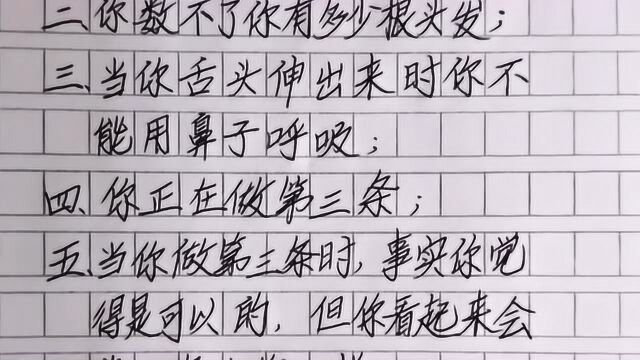 二、你数不了你有多少根头发；
三、当你舌头伸出来时你不
能用鼻子呼吸；
四、你正在做第三条；
五、当你做第三条时，事实你觉
得是可以的，但你看起来会